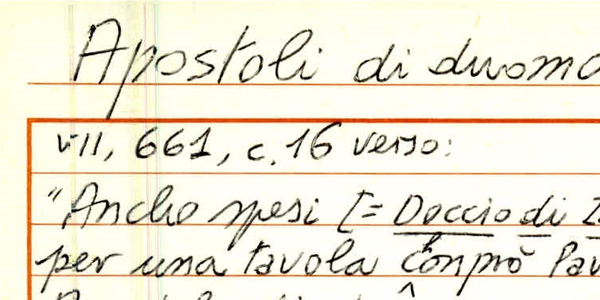 Apostoli di duomo
VII, 661, c. 16 verso:
"Ancho spesi [= Doccio di
per una tavola conprò